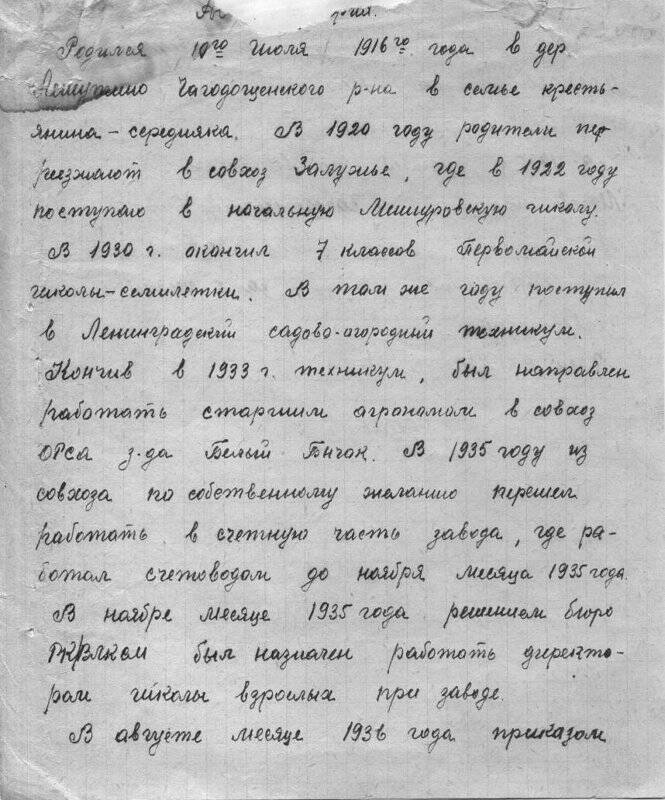 Родился 10го Июля 1916го года в дер.
Чагодощенского р-на в семье кресть-
янина-середняка. В 1920 году родители пе-
реезжают в совхоз Залужье, где в 1922 году
поступаю в начальную Мишуровскую школу.
В 1930 г. окончил 7 классов Первомайской
школы-семилетки. В том же году поступил
в Ленинградский садово-огородный техникум.
Кончив в 1933 г. техникум, был направлен
работать старшим агрономом в совхоз
ОРСа з-да Белый Бычок. В 1935 году из
совхоза по собственному желанию перешел
работать в счетную часть завода, где ра-
ботал счетоводом до ноября месяца 1935 года.
В ноябре месяце 1935 года решением бюро
РКВЛКСМ был назначен работать директо-
ром школы взрослых при заводе.
В августе месяце 1936 года приказом